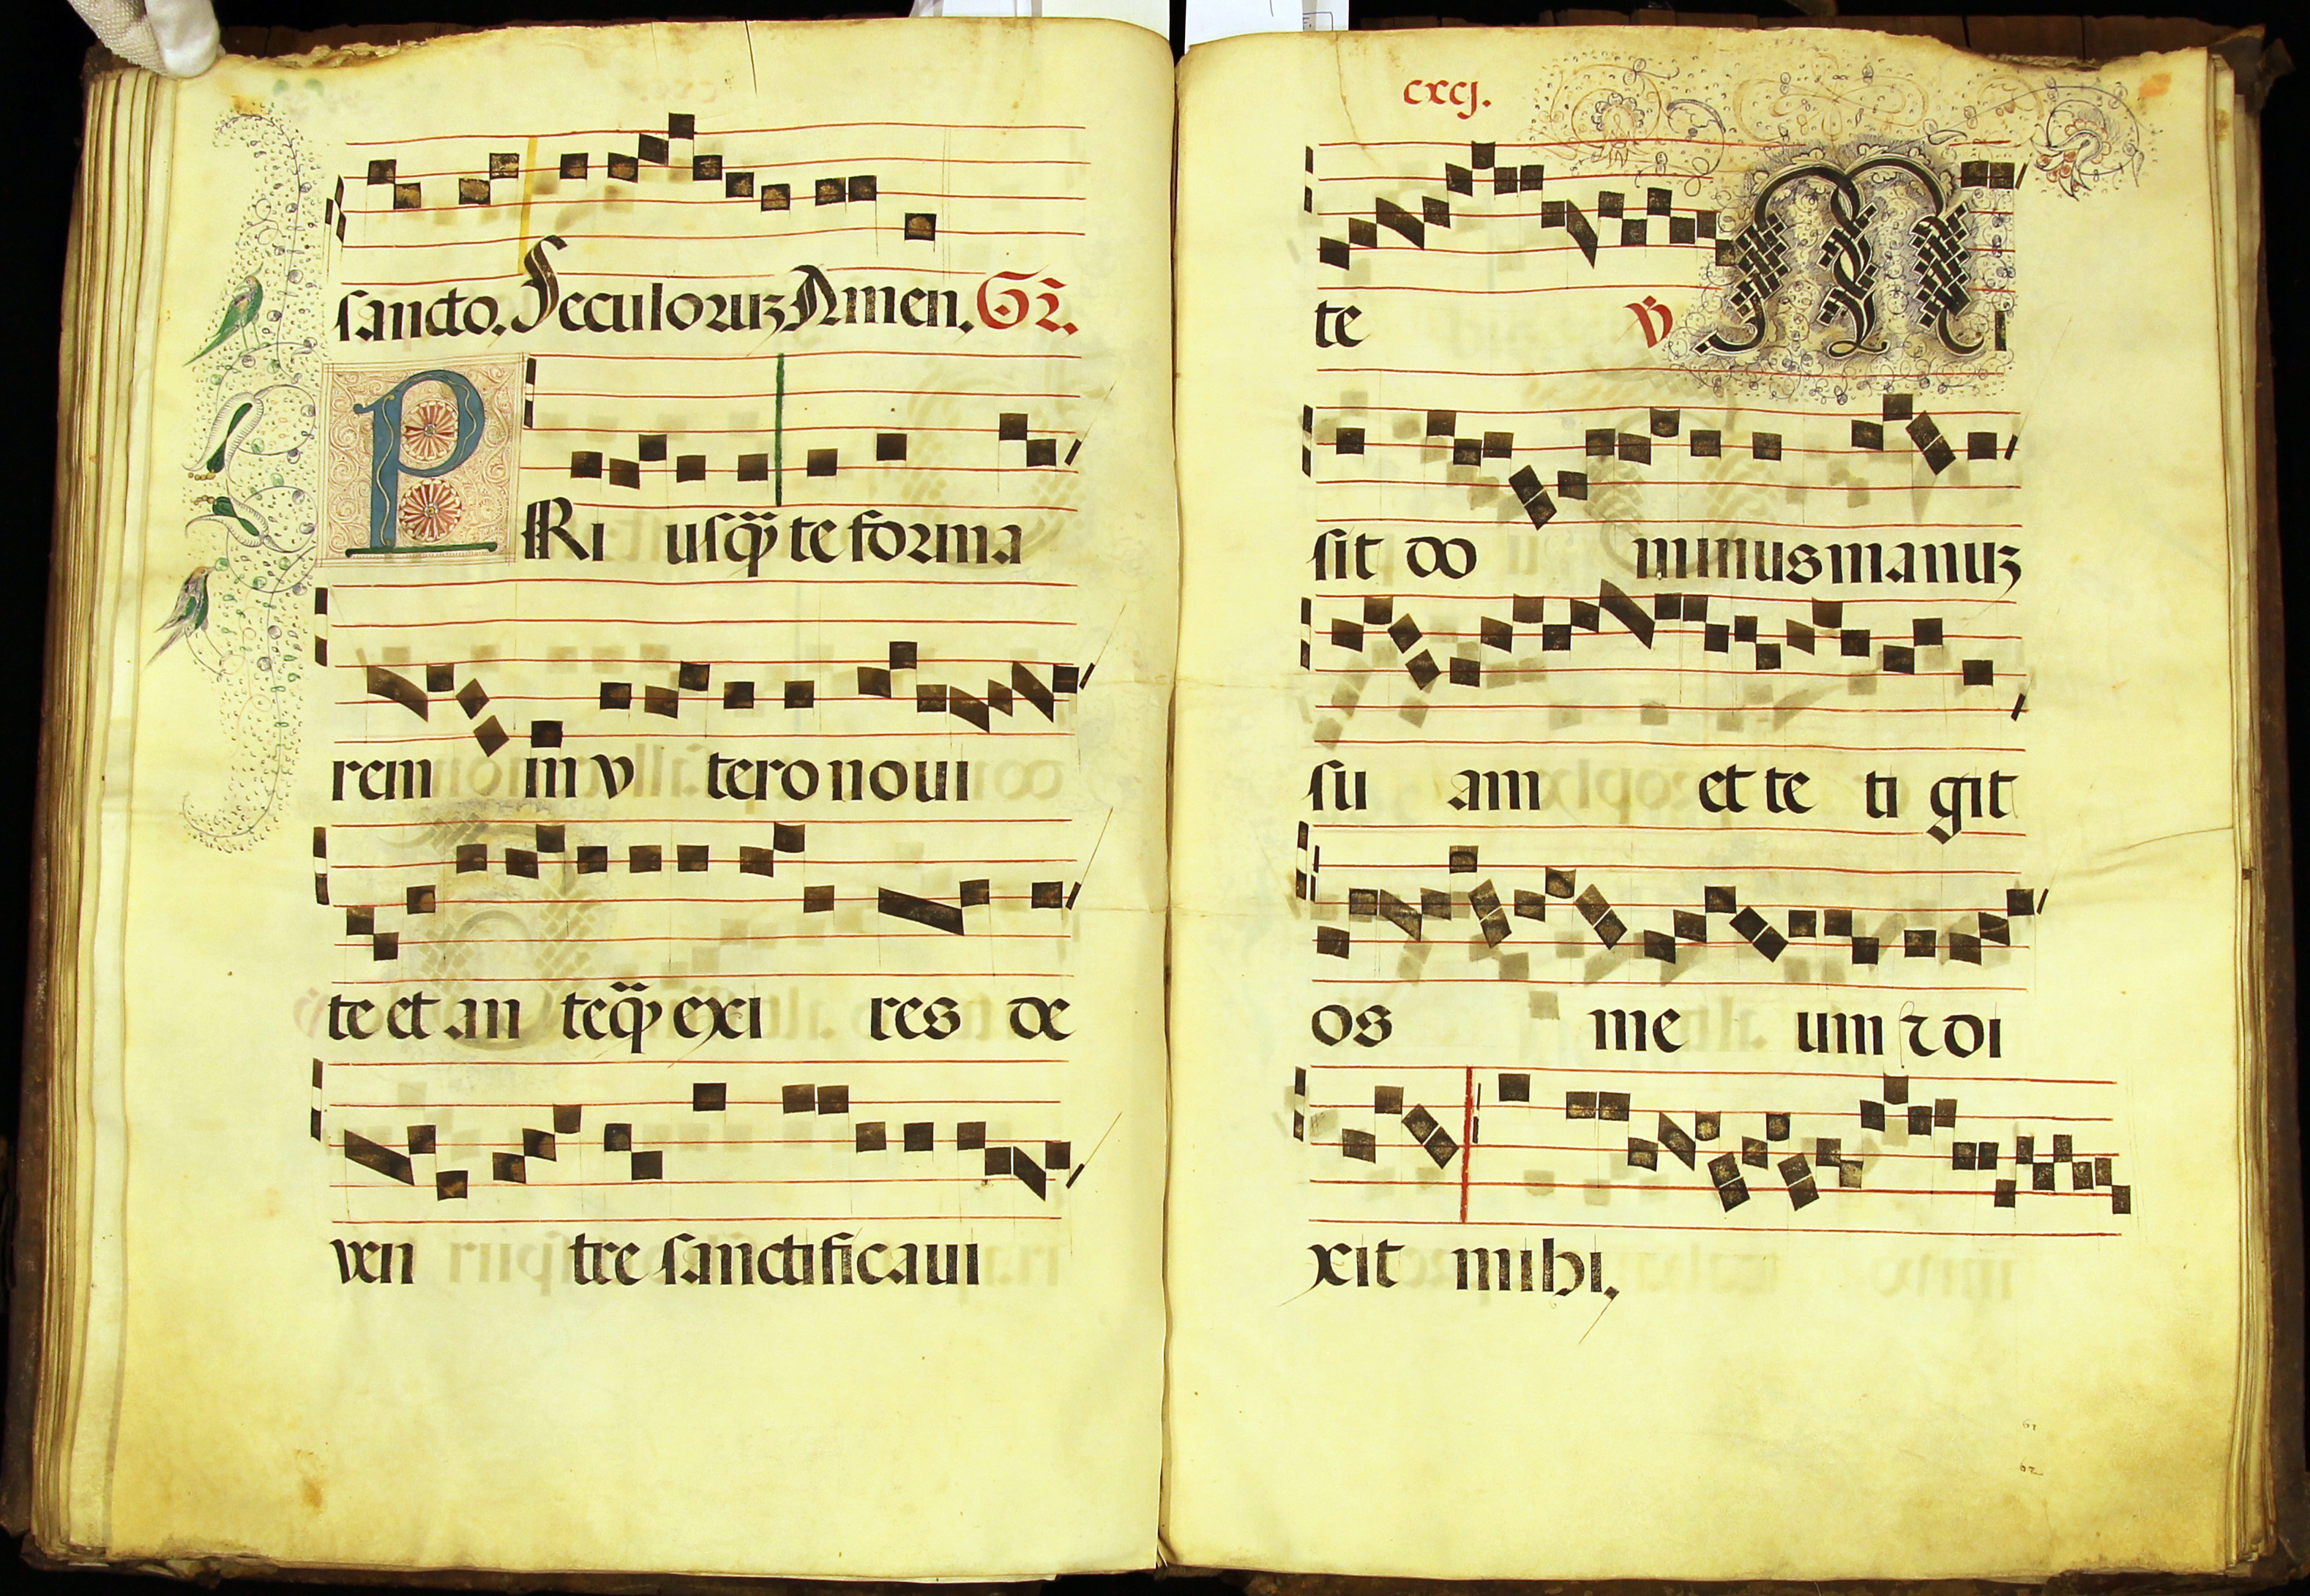 sancto. Seculoruꝫ Amen. Gr̃.
PRi usq̃ȝ te forma
rem in v tero noui
te et an teq̃ȝ exi res de
ven tre sanctificaui
cxcj.
te ℣ Mi
sit do minus manuꝫ
su am et te ti git
os me um ⁊ di
xit mihi.
61
62